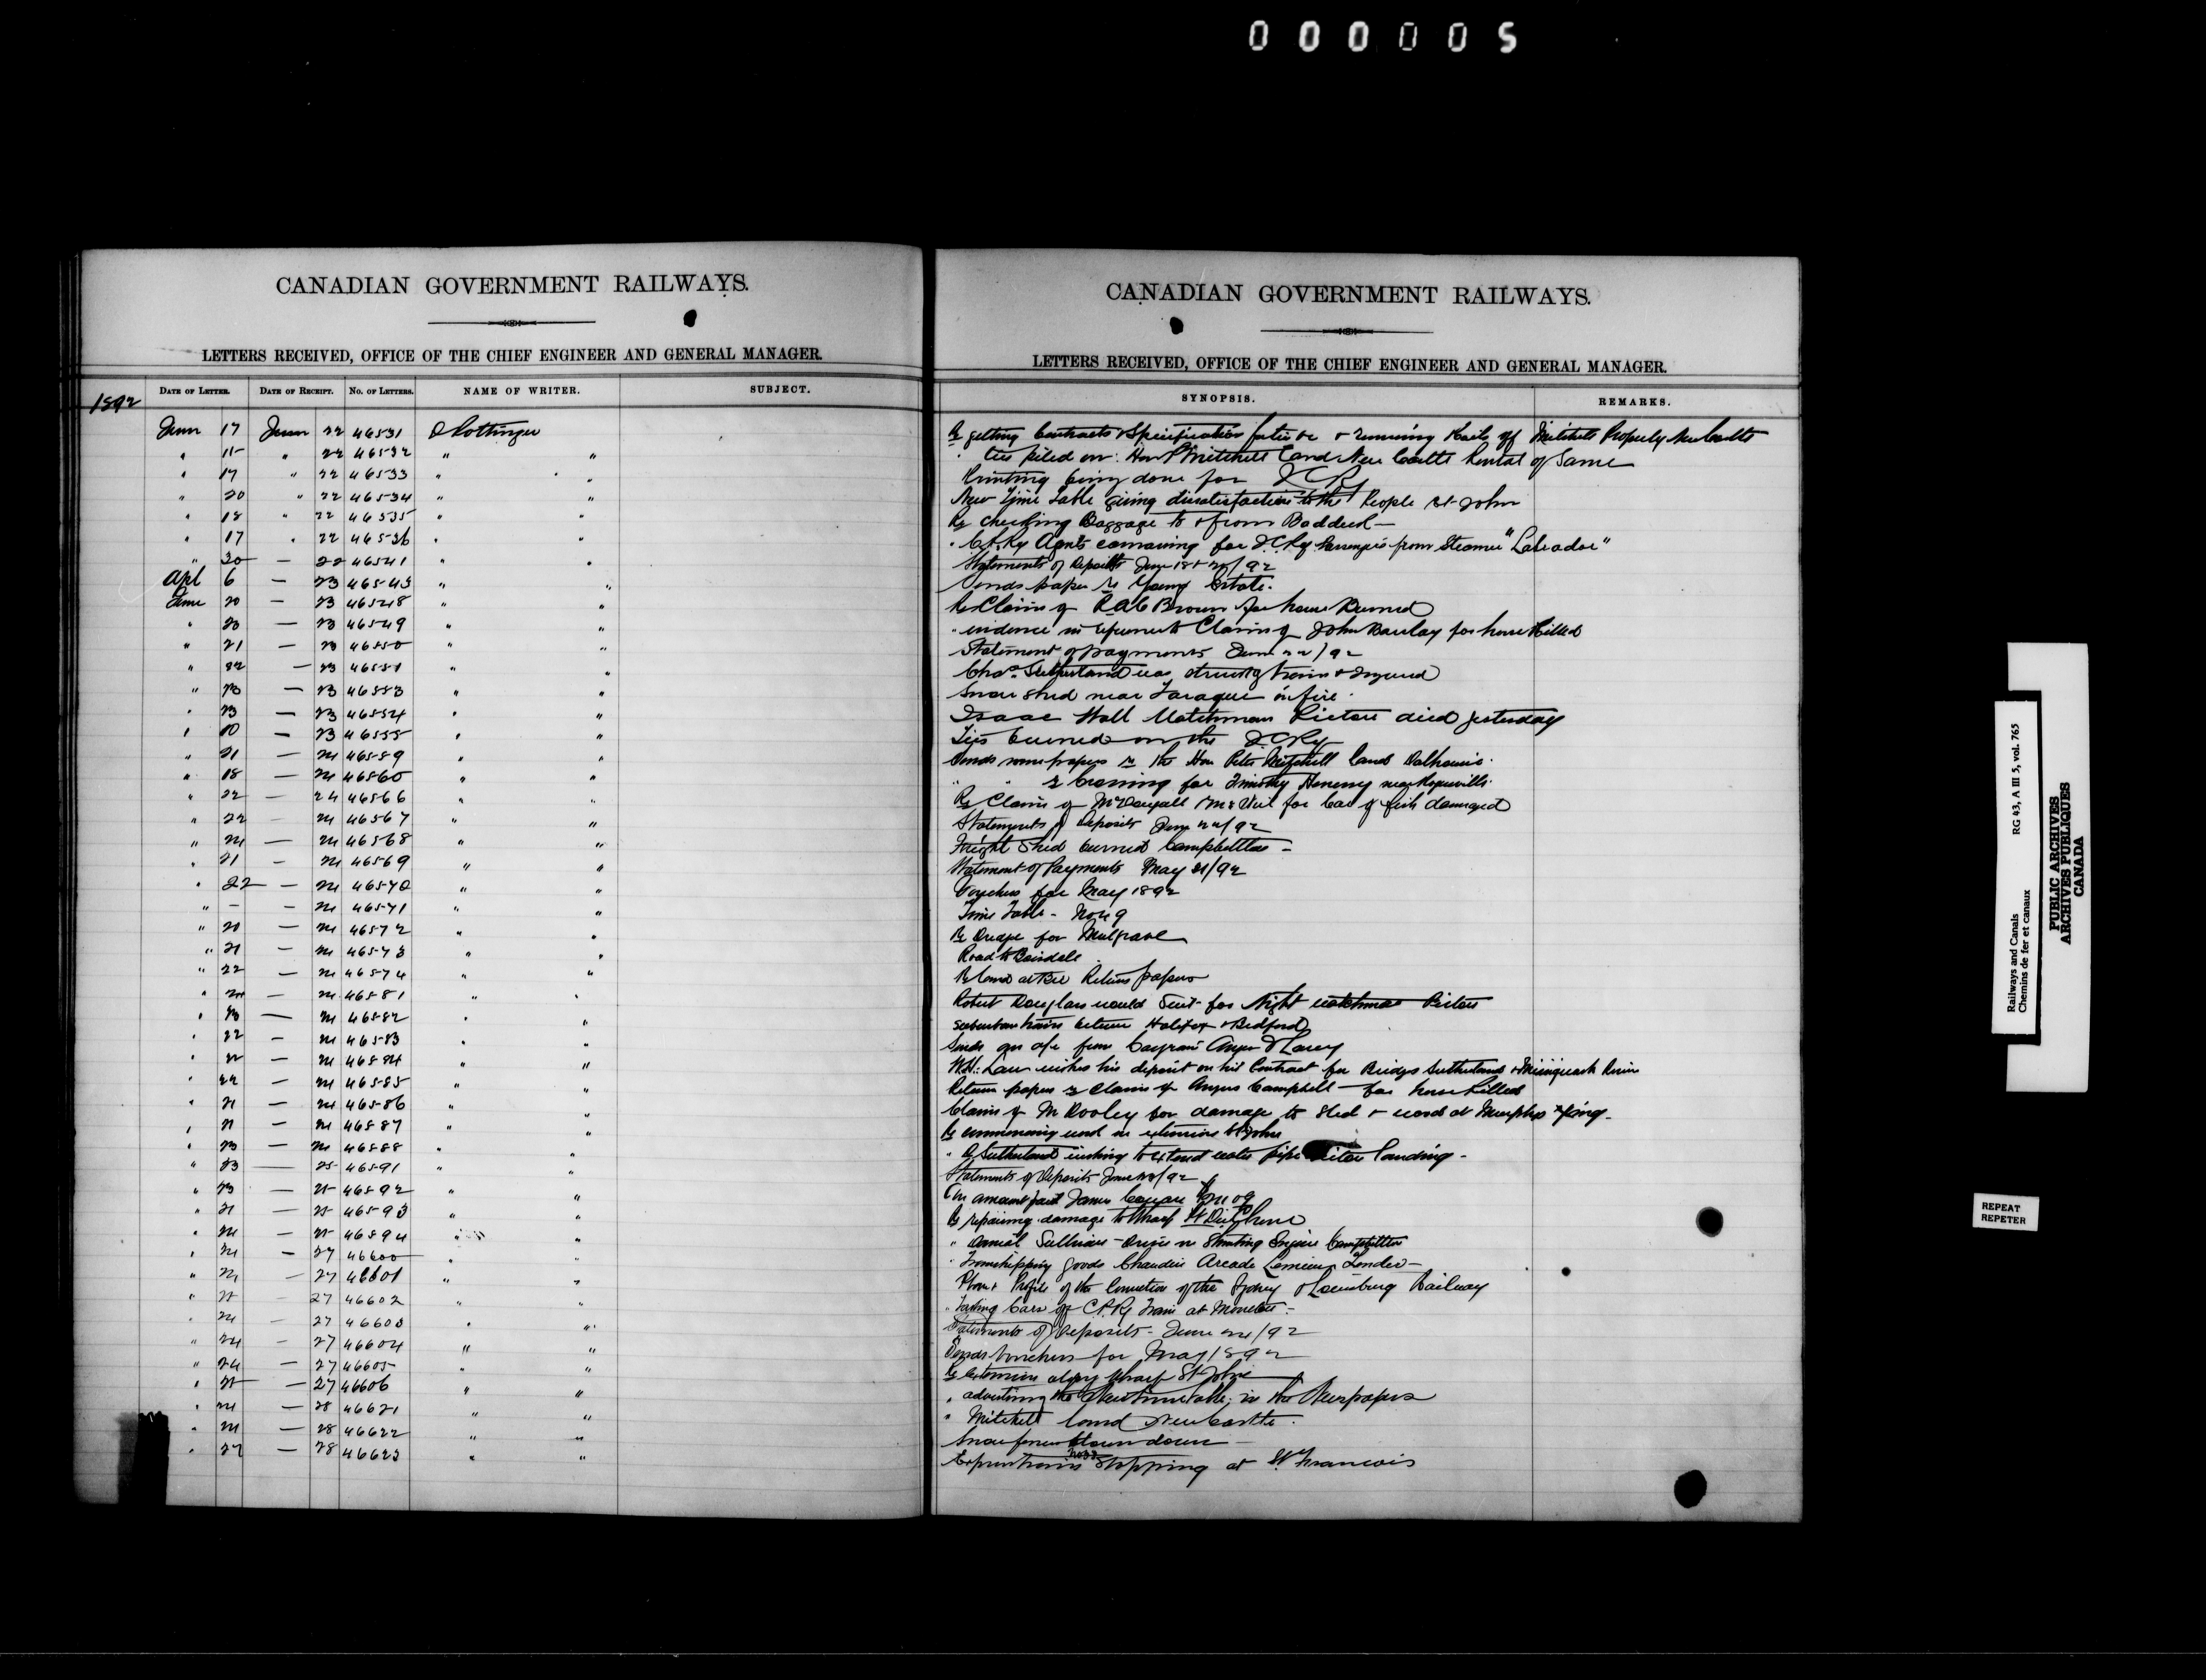 000005
CANADIAN GOVERNMENT RAILWAYS.
LETTERS RECEIVED, OFFICE OF THE CHIEF ENGINEER AND GENERAL MANAGER.
1892
DATE OF LETTER. DATE OF RECEIPT. NO. OF LETTERS. NAME OF WRITER. SUBJECT.
June 17 June 22 46531 D Pottinger
" 15 " 22 46532 " "
" 17 " 22 46533 " "
" 20 " 22 46534 " "
" 18 " 22 46535 " "
" 17 " 22 46536 " "
" 20 — 22 46541 " "
Apl 6 — 23 46543 " "
June 20 — 23 46548 " "
" 23 — 23 46549 " "
" 21 — 23 46550 " "
" 22 — 23 46551 " "
" 23 — 23 46553 " "
" 23 — 23 46554 " "
" 20 — 23 46555 " "
" 21 — 24 46559 " "
" 18 — 24 46560 " "
" 22 — 24 46566 " "
" 22 — 24 46567 " "
" 24 — 24 46568 " "
" 21 — 24 46569 " "
" 22 — 24 46570 " "
" – — 24 46571 " "
" 21 — 24 46572 " "
" 21 — 24 46573 " "
" 22 — 24 46574 " "
" 24 — 24 46581 " "
" 23 — 24 46582 " "
" 22 — 24 46583 " "
" 22 — 24 46584 " "
" 22 — 24 46585 " "
" 21 — 24 46586 " "
" 21 — 24 46587 " "
" 23 — 24 46588 " "
" 23 — 25 46591 " "
" 23 — 25 46592 " "
" 21 — 25 46593 " "
" 24 — 25 46594 " "
" 24 — 27 46600 " "
" 24 — 27 46601 " "
" 25 — 27 46602 " "
" 24 — 27 46603 " "
" 24 — 27 46604 " "
" 24 — 27 46605 " "
" 25 — 27 46606 " "
" 24 — 28 46621 " "
" 24 — 28 46622 " "
" 27 — 28 46623 " "
CANADIAN GOVERNMENT RAILWAYS.
LETTERS RECEIVED, OFFICE OF THE CHIEF ENGINEER AND GENERAL MANAGER.
SYNOPSIS. REMARKS.
Re getting Contracts & Specification & removing Rails off Mitchell Property Newcastle
" ties piled on Hon P Mitchell Land New Castle Rental of Same
Printing being done for ICR
New Time Table giving dissatisfaction to the People St John
Re checking Baggage to & from Baddeck —
" C.P.Ry Agents for I.C.Ry Passengers from Steamer "Labrador"
Statements of Deposits June 18 & 20/92
Sends papers re Young Estate.
Re Claim of Brown for house Burned
" evidence in reference to Claim of John Barclay for horse killed
Statement of payments June 22/92
Chas. Sutherland was struck by train & injured
Snow shed near on fire.
Isaac Hall Watchman Pictou died yesterday
Ties burned on the I.C.Ry
Sends some papers re the Hon Peter Mitchell land Dalhousie.
" " re Crossing for Timothy near Rogersville.
Re Claim of McDougall for Car of fish damaged
Statements of Deposits June 22/92
Freight Shed burned Campbellton —
Statement of Payments May 21/92
Vouchers for May 1892
Time Table – No 49
Re for Mulgrave
Road to Boisdale
Re land Return papers
Robert Douglass would Suit for Night watchman Pictou
Suburban trains between Halifax & Bedford
Sends from
W.H. Law wishes his deposit on his Contract for Bridges Sutherlands & River
Return papers re Claim of Angus Campbell — for horse killed
Claim of M Dooley for damage to sled & wood at Murphys Xing.
Re commencing work on extension St John
" Sutherland wishing to extend water pipe Pictou Landing —
Statements of Deposits June 23/92
Re amount paid James
Re repairing damage to Wharf
" Daniel Sullivan — Driver on Shunting Engine Campbellton
" Transhipping goods Chaudiere
Plan & Profile of the Connection of the Sydney & Louisburg Railway
" Taking Cars off C.P.Ry Train at Moncton —
Statements of Deposits – June 24/92
Sends Vouchers for May 1892
Re Extension along wharf St John
" advertising the New timetable in the Newspapers
" Mitchell land New Castle.
Snow fences blown down —
Express trains stopping at St. Francois
Railways and Canals RG 43, A III 5, vol. 765
Chemins de fer et canaux
PUBLIC ARCHIVES
ARCHIVES PUBLIQUES
CANADA
REPEAT
REPETER